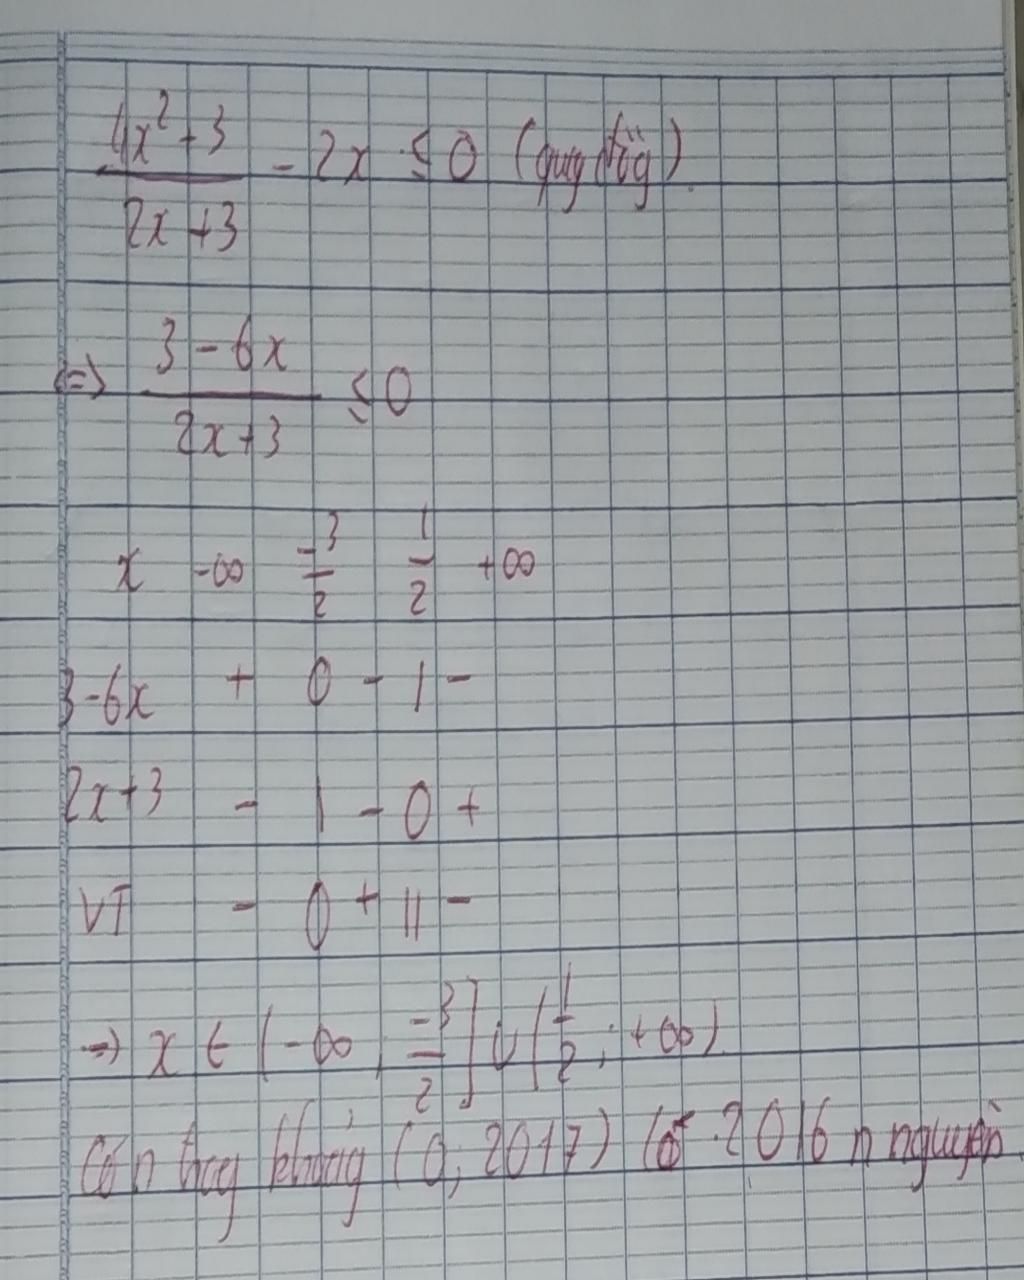 4x² + 3 / 2x + 3 - 2x ≤ 0 (quy đồng)
<=> 3 - 6x / 2x + 3 ≤ 0
x -∞ -3/2 1/2 +∞
3-6x + 0 - | -
2x+3 - | - 0 +
VT - 0 + || -
=> x ∈ (-∞; -3/2] ∪ (1/2; +∞)
Có n trong khoảng (0; 2017) Có 2016 n nguyên